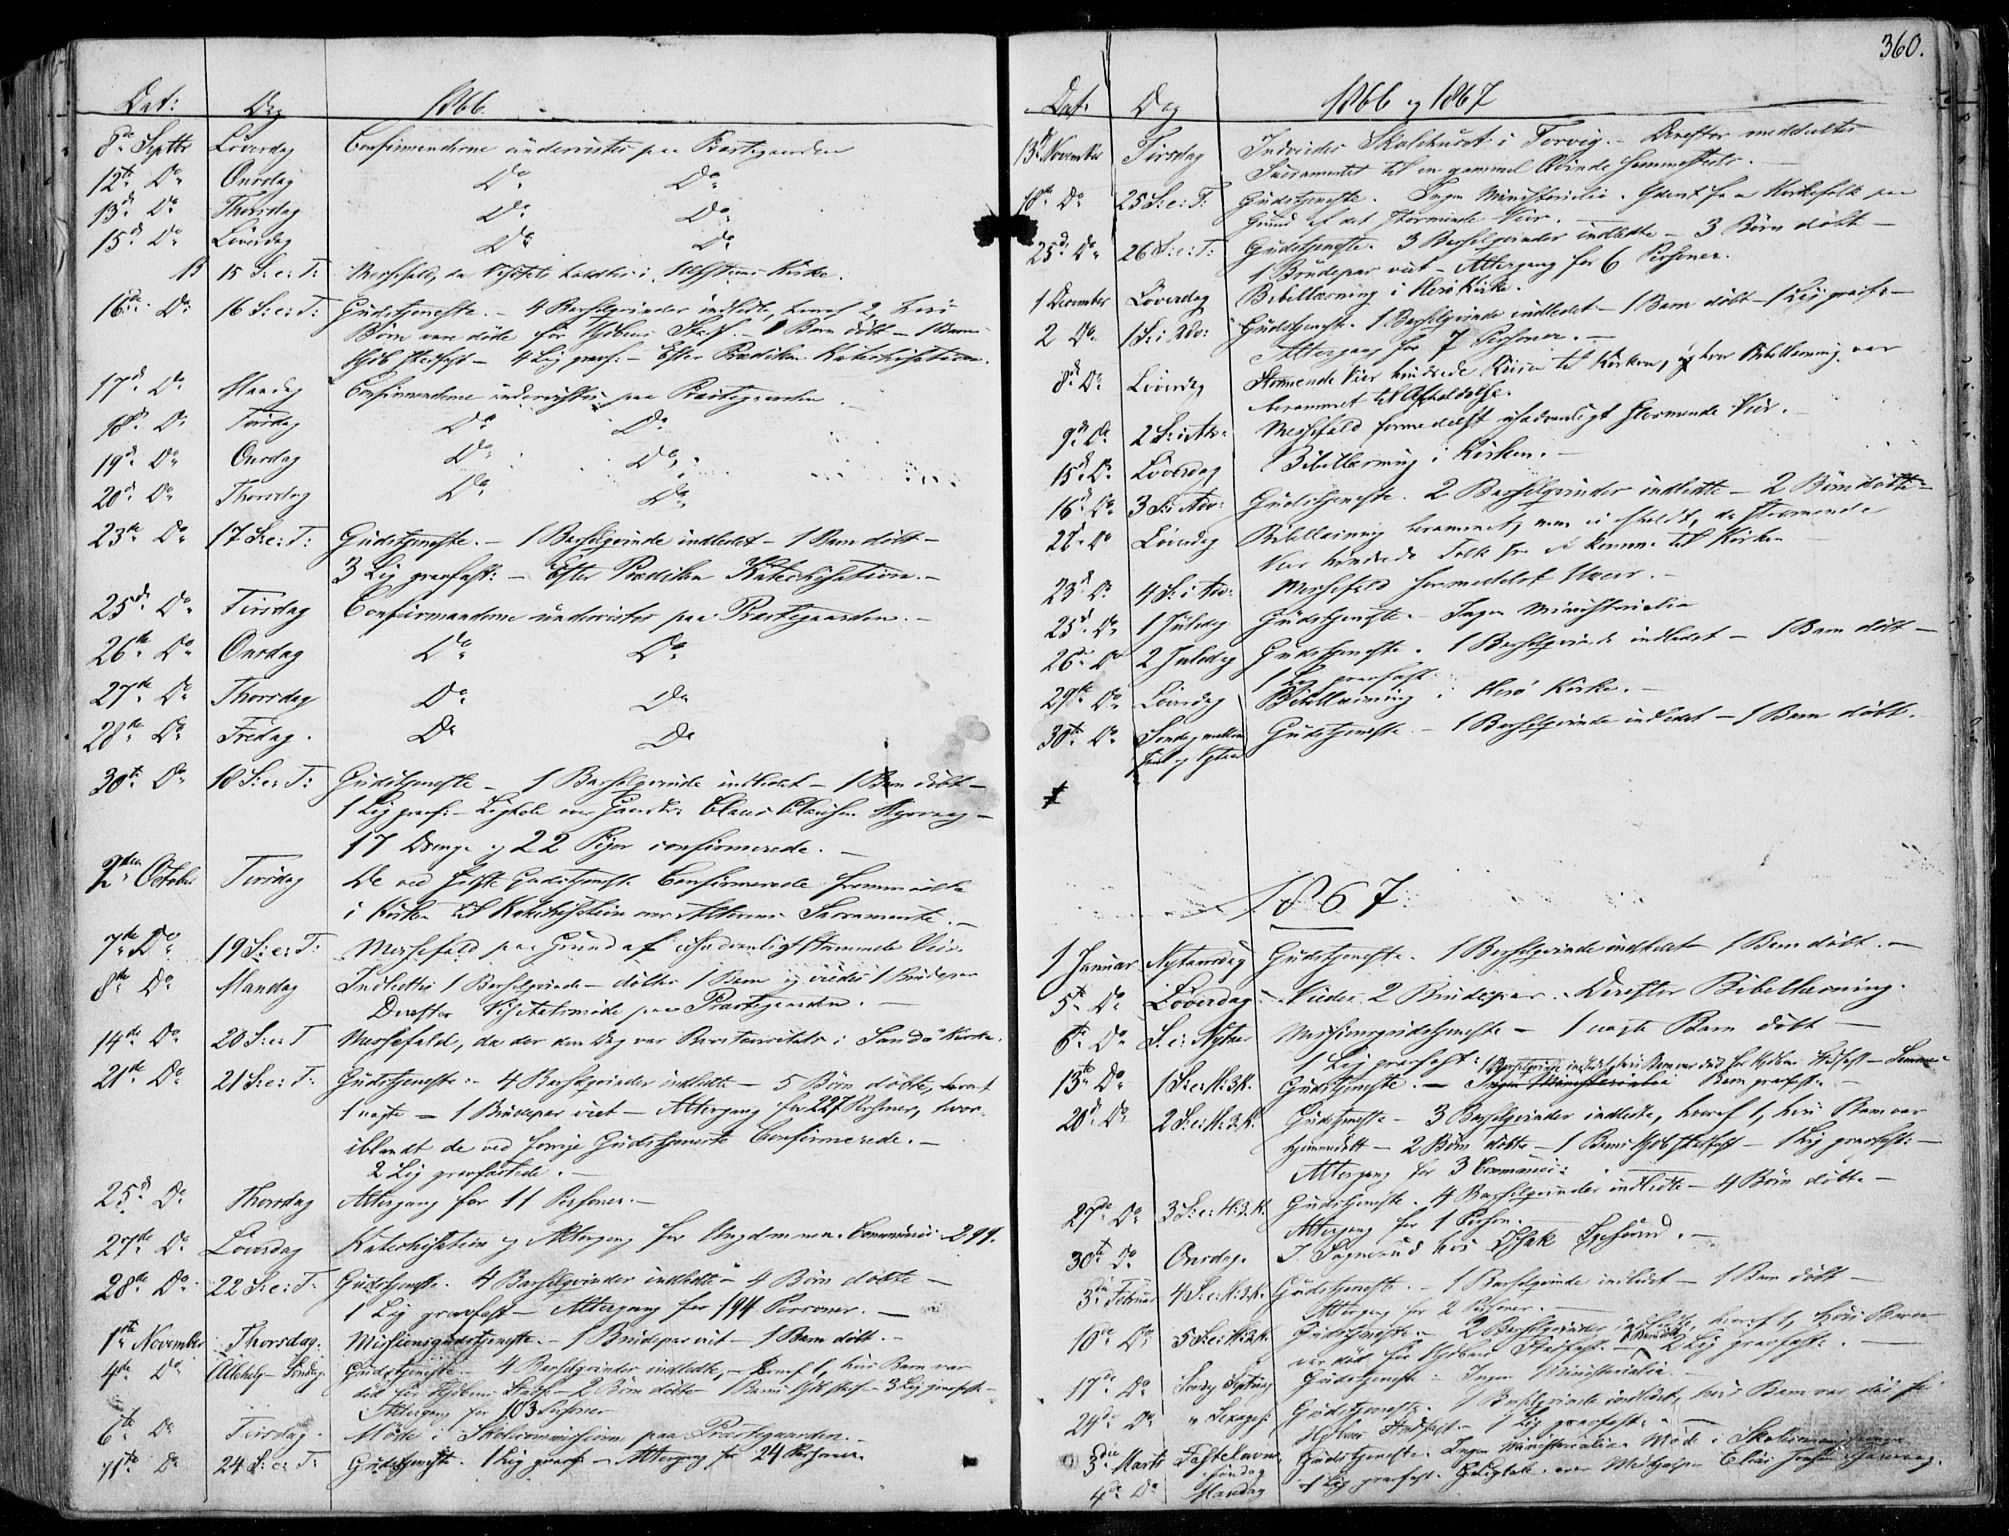 360.
Dat: Dag 1866.
8de Septbr Løverdag Confirmanderne undervistes paa Præstegaarden
12te Do Onsdag Do Do
13d Do Thorsdag Do Do
15d Do Løverdag Do Do
15 S: e: T: Messefald, da holdtes i Kirke.
16de Do 16 S: e: T: Gudstjeneste. – 4 Barselqvinder indledte, hvoraf 2, hvis
Børn vare døde før – 1 Barn døbt – 1 Barns
4 Lig græsf: – Efter Prædiken Katechisation.
17d Do Mandag Confirmanderne undervistes paa Præstegaarden.
18d Do Tirsdag Do Do
19d Do Onsdag Do Do
20d Do Thorsdag Do Do
23de Do 17 S: e: T: Gudstjeneste. – 1 Barselqvinde indledet – 1 Barn døbt –
3 Lig græsfæst: – Efter Prædiken Katechisation. –
25d Do Tirsdag Confirmanderne undervistes paa Præstegaarden. –
26de Do Onsdag Do Do
27de Do Thorsdag Do Do
28de Do Fredag. Do Do
30te Do 18 S: e: T: Gudstjeneste – 1 Barselqvinde indledet – 1 Barn døbt –
1 Lig græsf: – Ligtale over Claus Clausen
17 Drenge og 22 Piger confirmerede. –
2den October Tirsdag De ved sidste Gudstjeneste Confirmerede fremmødte
i Kirken til Katechisation over Alterens Sacramente. –
7de Do 19 S: e: T: Messefald paa Grund af usædvanligt stormende Veir.
8de Do Mandag Indledtes 1 Barselqvinde – døbtes 1 Barn og viedes 1 Brudepar
Derefter paa Præstegaarden. –
14de Do 20 S: e: T Messefald, da der den Dag var i Sandø Kirke.
21de Do 21 S: e: T: Gudstjeneste. – 4 Barselqvinder indledte – 5 Børn døbte, hvoraf
1 uægte – 1 Brudepar viet – Altergang for 227 Personer, hvor-
iblandt de ved forrige Gudstjeneste Confirmerede. –
2 Lig græsfæstede. –
25d Do Thorsdag Altergang for 11 Personer. –
27de Do Løverdag Katechisation og Altergang for Ungdommen. Communic: 299.
28de Do 22 S: e: T: Gudstjeneste. 4 Barselqvinder indledte – 4 Børn døbte –
1 Lig græsfæst – Altergang for 194 Personer. –
1ste November Thorsdag. Missionsgudstjeneste. – 1 Brudepar viet – 1 Barn døbt. –
4de Do Allehelg. Søndag Gudstjeneste. 4 Barselqvinder indledte, – hvoraf 1, hvis Barn var
død før – 2 Børn døbte – 3 Lig græsfæst –
Altergang for 103 Personer
6te Do Tirsdag. Møde i Skolecommissionen paa Præstegaarden. –
11te Do 24 S: e: T: Gudstjeneste. 1 Lig græsf: – Altergang for 24 Personer.
Dat: Dag 1866 og 1867
13d November Tirsdag Indviedes Skolehuset i Torvig. – Derefter meddeeltes
Sacramentet til en gammel Qvinde sammesteds. –
18de Do 25 S: e: T: Gudstjeneste. Ingen Ministerialia. Kirkefolk paa
Grund af det stormende Veir. –
25d Do 26 S: e: T: Gudstjeneste. 3 Barselqvinder indledte – 3 Børn døbt –
1 Brudepar viet – Altergang for 6 Personer.
1 December Løverdag Bibellæsning i Herø Kirke.
2 Do 1 S: i Adv: Gudstjeneste. 1 Barselqvinde indledet – 1 Barn døbt – 1 Lig græsf: –
Altergang for 7 Personer. –
8d Do Løverdag Stormende Veir hindrede Reisen til Kirken, hvor Bibellæsning var
berammet til Afholdelse.
9d Do 2 S: i Adv: Messefald formedelst usædvanligt stormende Veir. –
15d Do Løverdag Bibellæsning i Kirken. –
16d Do 3 S: i Adv: Gudstjeneste. 2 Barselqvinder indledte – 2 Børn døbte –
22d Do Løverdag Bibellæsning berammet, men ei afholdt, da stormende
Veir hindrede Folk fra at komme til Kirke
23d Do 4 S: i Adv: Messefald formedelst Uveir. –
25d Do 1 Juledag Gudstjeneste. – Ingen Ministerialia
26de Do 2 Juledag Gudstjeneste. 1 Barselqvinde indledet – 1 Barn døbt –
1 Lig græsfæst.
29de Do Løverdag Bibellæsning i Herø Kirke. –
30te Do Søndag mellem Gudstjeneste – 1 Barselqvinde indledet – 1 Barn døbt.
Juul og Nytaar
1867.
1 Januar Nytaarsdag Gudstjeneste. 1 Barselqvinde indledet 1 Barn døbt. –
5te Do Løverdag Viedes 2 Brudepar. Derefter Bibellæsning.
6te Do S. e: Nytaar Missionsgudstjeneste – 1 uægte Barn døbt –
1 Lig græsfæst:
13de Do 1 S: e: H: 3 K. Gudstjeneste. – Ingen Ministerialia Barn græsfæst: –
20d Do 2 S: e: H: 3. K. Gudstjeneste – 3 Barselqvinder indledte, hvoraf 1, hvis Barn var
hjemmedøbt – 2 Børn døbte – 1 Barns – 1 Lig græsfæst: –
Altergang for 3 Communic:
27de Do 3 S: e: H: 3. K. Gudstjeneste. 4 Barselqvinder indledte – 4 Børn døbte –
Altergang for 1 Person. –
30te Do Onsdag. I Sognebud hos Isak –
3die Februar 4 S: e: H: 3. K. Gudstjeneste. – 1 Barselqvinde indledet – 1 Barn døbt –
Altergang for 2 Personer. –
10de Do 5 S: e: H: 3. K. Gudstjeneste. – 2 Barselqvinder indledte, hvoraf 1, hvis Barn
var død før – 2 Lig græsfæst: –
17de Do Søndag Septuag Gudstjeneste – Ingen Ministerialia. –
24de Do " Sexages: Gudstjeneste. 1 Barselqvinde indledet, hvis Barn var død før
– 1 Lig græsfæst: –
3die Marts Fastelavns Gudstjeneste. Ingen Ministerialia. Møde i Skolecommissionen
Søndag
4de Do Mandag 1 Lig græsfæst. Ligtale over Elias